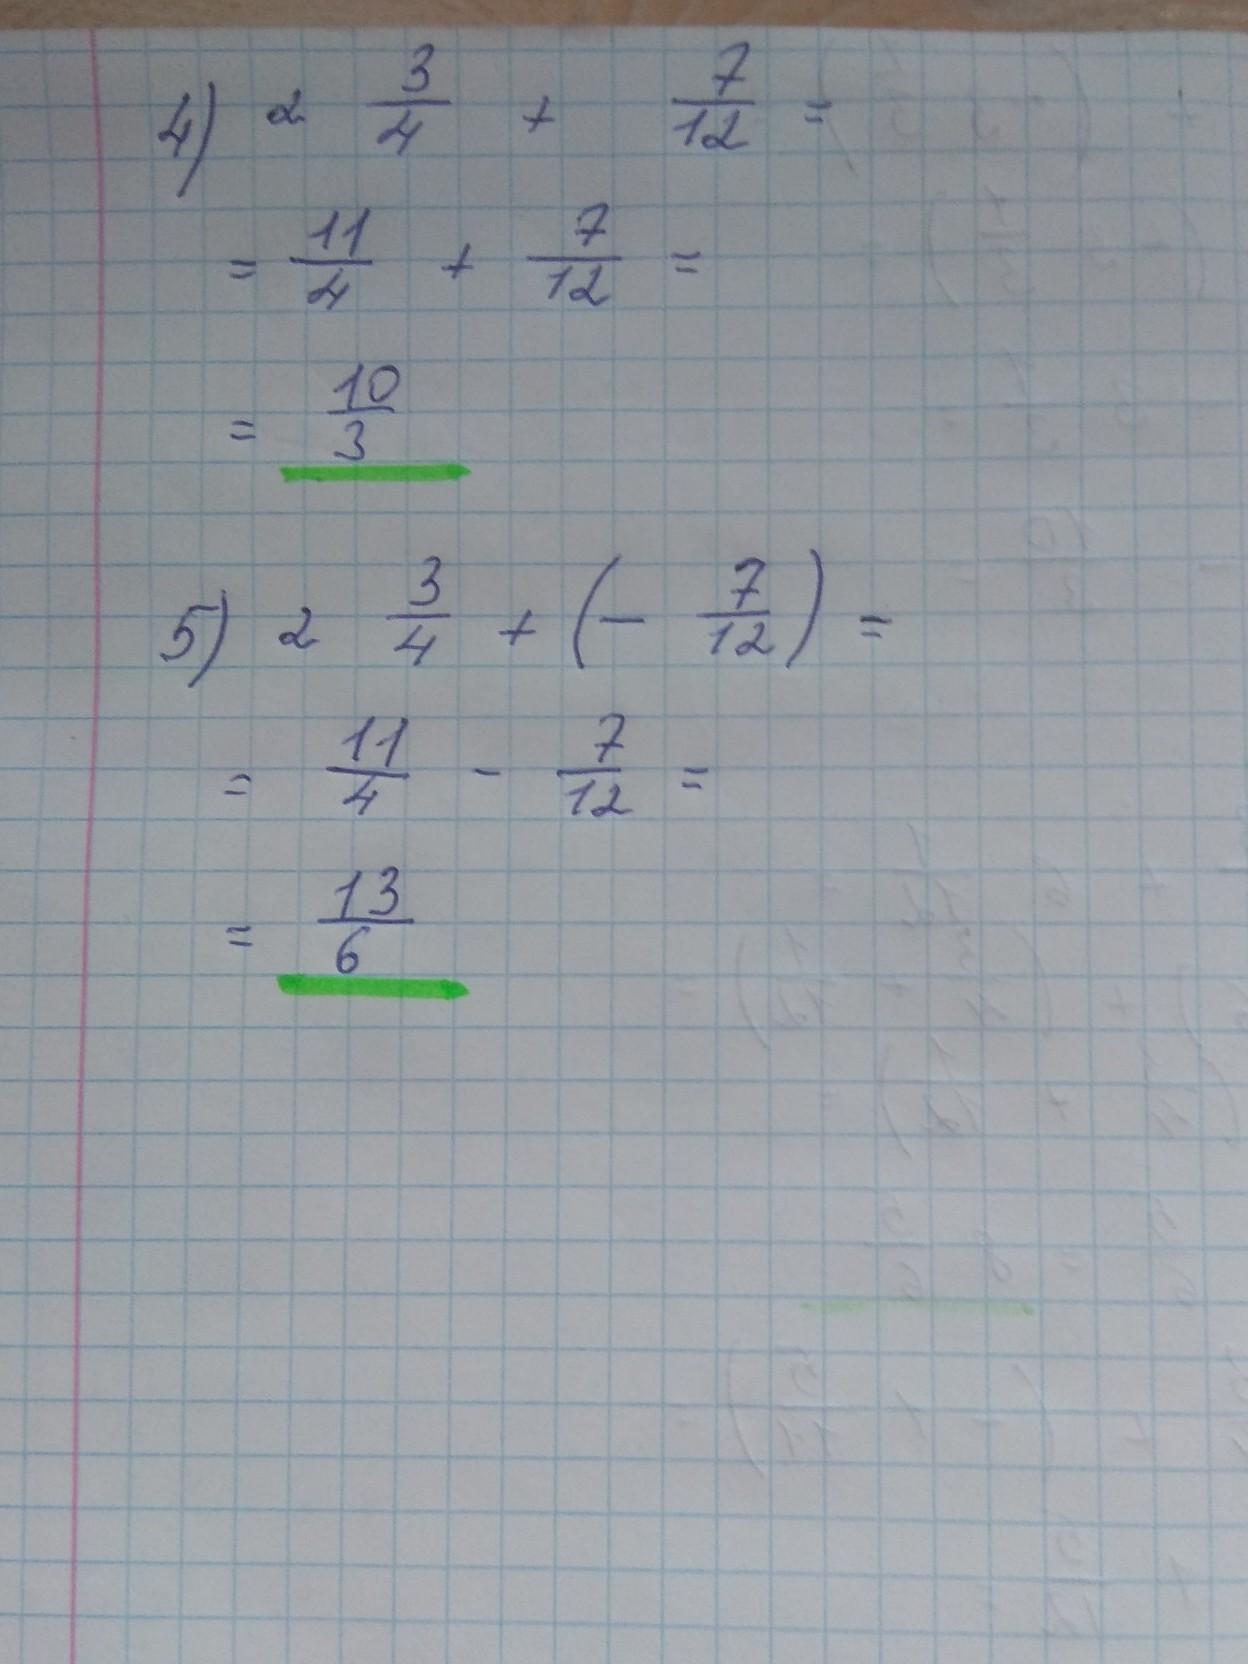 4) 2 3/4 + 7/12 =
= 11/4 + 7/12 =
= 10/3
5) 2 3/4 + (- 7/12) =
= 11/4 - 7/12 =
= 13/6